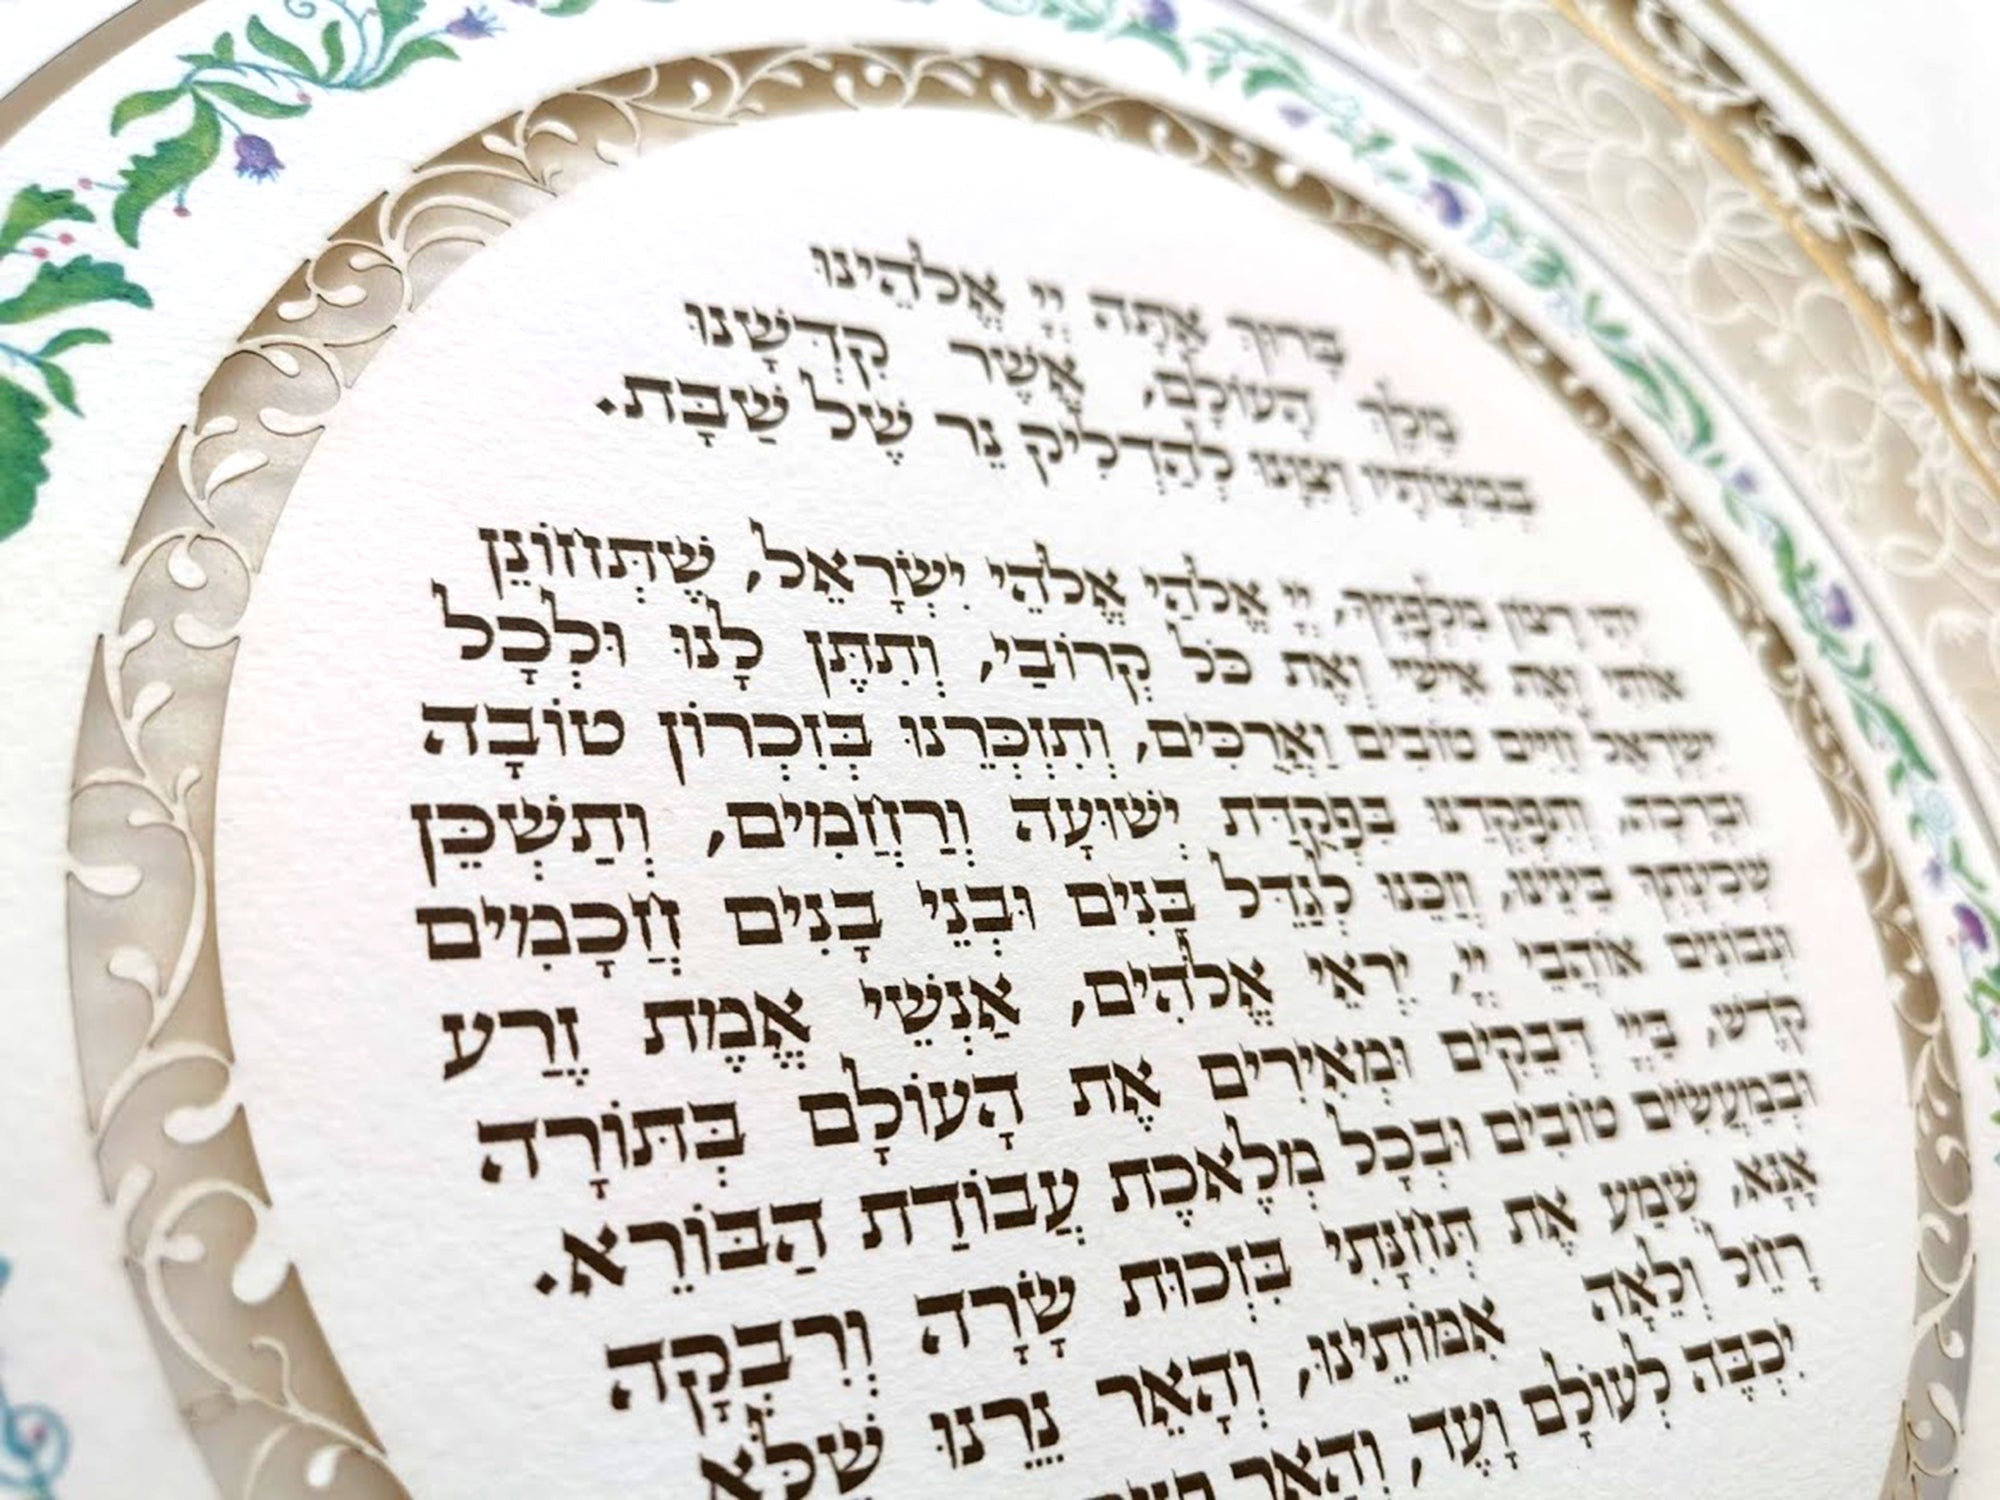 בָּרוּךְ אַתָּה יְיָ אֱלֹהֵינוּ
מֶלֶךְ הָעוֹלָם, אֲשֶׁר קִדְּשָׁנוּ
בְּמִצְוֹתָיו וְצִוָּנוּ לְהַדְלִיק נֵר שֶׁל שַׁבָּת.
יְהִי רָצוֹן מִלְּפָנֶיךָ, יְיָ אֱלֹהַי אֱלֹהֵי יִשְׂרָאֵל, שֶׁתְּחוֹנֵן
אוֹתִי וְאֶת אִישִׁי וְאֶת כֹּל קְרוֹבַי, וְתִתֶּן לָנוּ וּלְכָל
יִשְׂרָאֵל חַיִּים טוֹבִים וַאֲרֻכִּים, וְתִזְכְּרֵנוּ בְּזִכְרוֹן טוֹבָה
וּבְרָכָה, וְתִפְקְדֵנוּ בִּפְקֻדַּת יְשׁוּעָה וְרַחֲמִים, וְתַשְׁכֵּן
שְׁכִינָתְךָ בֵּינֵינוּ, וְזַכֵּנוּ לְגַדֵּל בָּנִים וּבְנֵי בָנִים חֲכָמִים
וּנְבוֹנִים אוֹהֲבֵי יְיָ, יִרְאֵי אֱלֹהִים, אַנְשֵׁי אֱמֶת זֶרַע
קֹדֶשׁ, בַּיְיָ דְּבֵקִים וּמְאִירִים אֶת הָעוֹלָם בְּתּוֹרָה
וּבְמַעֲשִׂים טוֹבִים וּבְכָל מְלֶאכֶת עֲבוֹדַת הַבּוֹרֵא.
אָנָּא, שְׁמַע אֶת תְּחִנָּתִי בִּזְכוּת שָׂרָה וְרִבְקָה
רָחֵל וְלֵאָה אִמּוֹתֵינוּ, וְהָאֵר נֵרֵנוּ שֶׁלֹּא
יִכְבֶּה לְעוֹלָם וָעֶד, וְהָאֵר